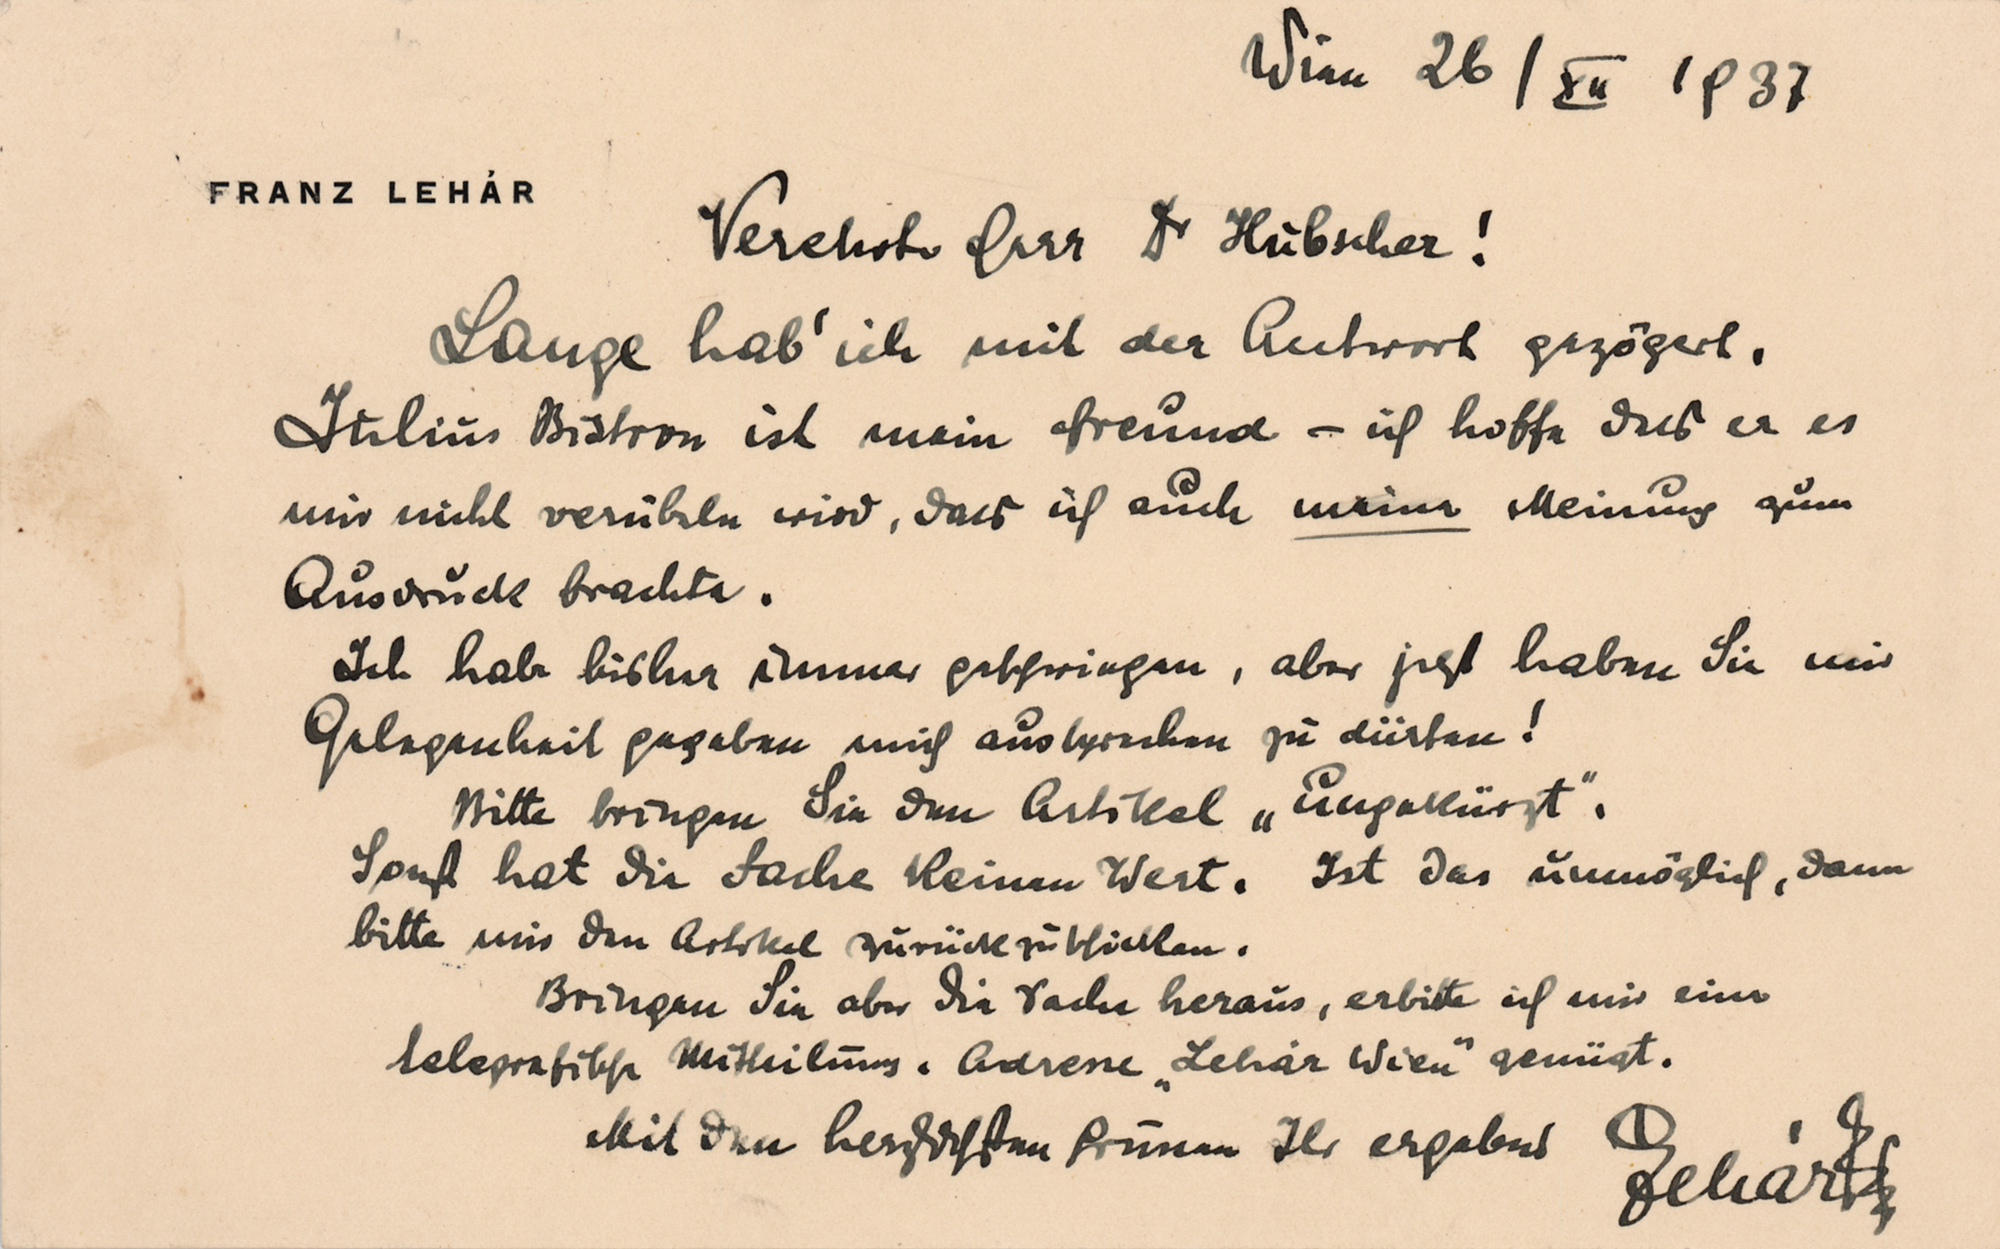 Wien 26/XII 1937
FRANZ LEHÁR
Verehrter Herr Dr Hübscher!
Lange hab' ich mit der Antwort gezögert.
Julius Bistron ist mein Freund – ich hoffe dass er es
mir nicht verübeln wird, dass ich auch meine Meinung zum
Ausdruck brachte.
Ich habe bisher immer geschwiegen, aber jetzt haben Sie mir
Gelegenheit gegeben mich aussprechen zu dürfen!
Bitte bringen Sie den Artikel „Ungekürzt".
Sonst hat die Sache keinen Wert. Ist das unmöglich, dann
bitte mir den Artikel zurückzuschicken.
Bringen Sie aber die Sache heraus, erbitte ich mir eine
telegrafische Mitteilung. Adresse „Lehár Wien" genügt.
Mit den herzlichsten Grüssen Ihr ergebenst
Lehár